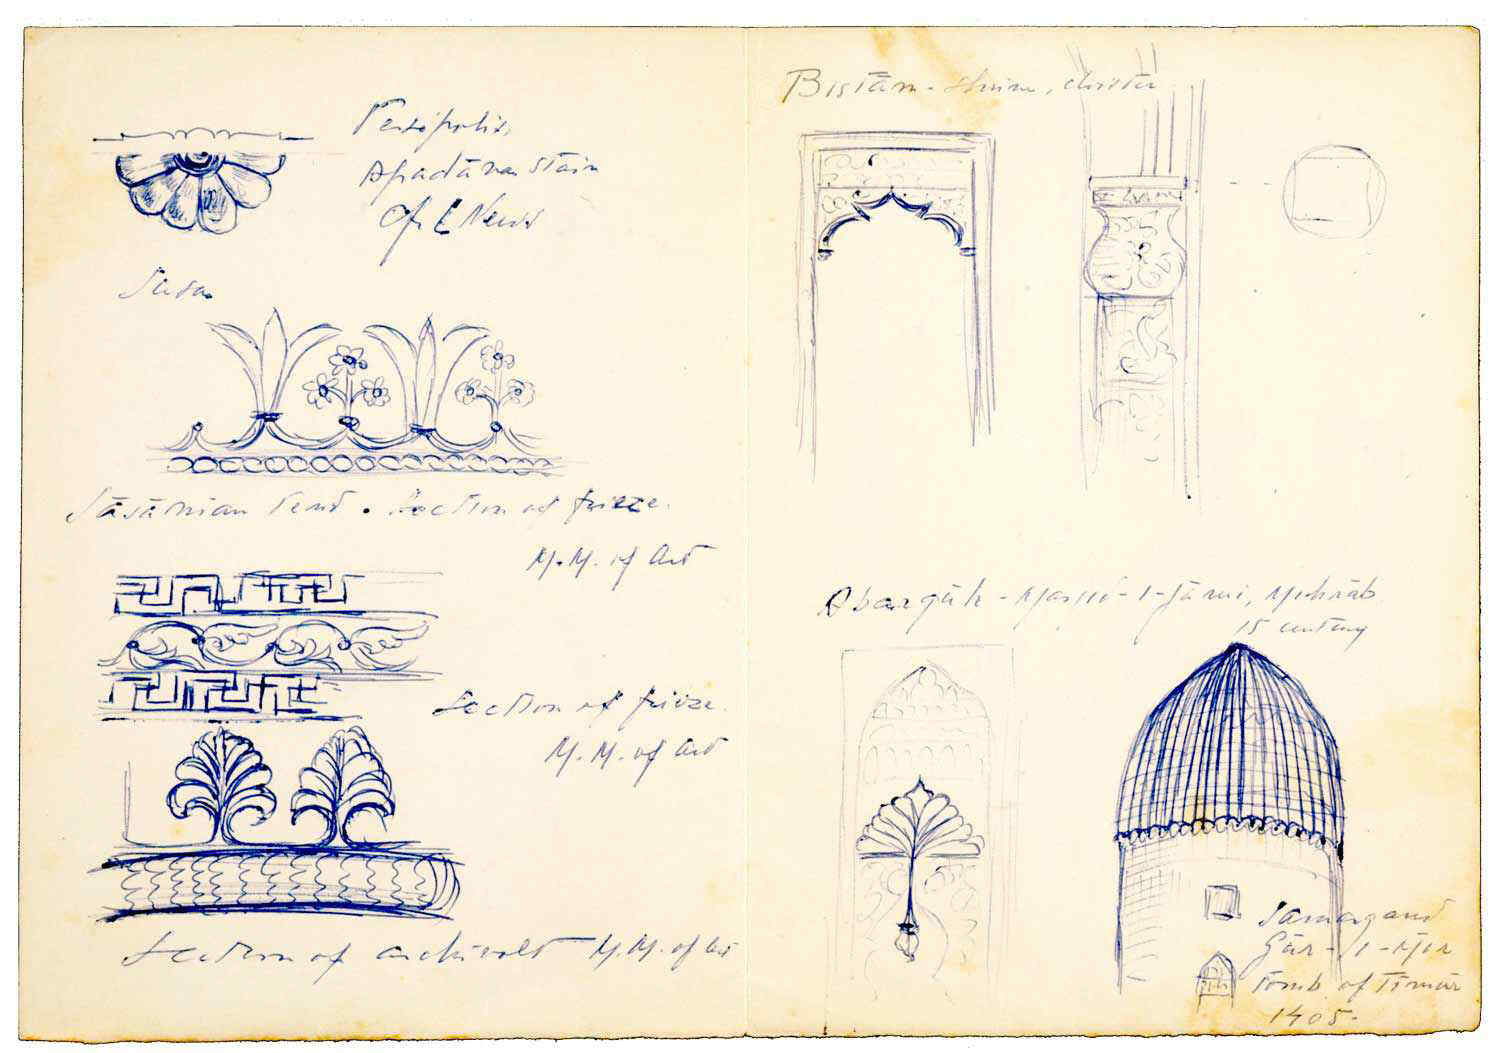 Persepolis,
Apadāna Stair
of E
Susa
Sāsānian Period. Section of frieze.
M.M. of Art
Section of frieze.
M.M. of Art
Section of archivolt M.M. of Art
Bistām - Shrine,
Abarqūh - Masjid-i-Jāmi, Mihrāb
15 century
Samarqand
Gūr-i-Mir
Tomb of Timūr
1405.